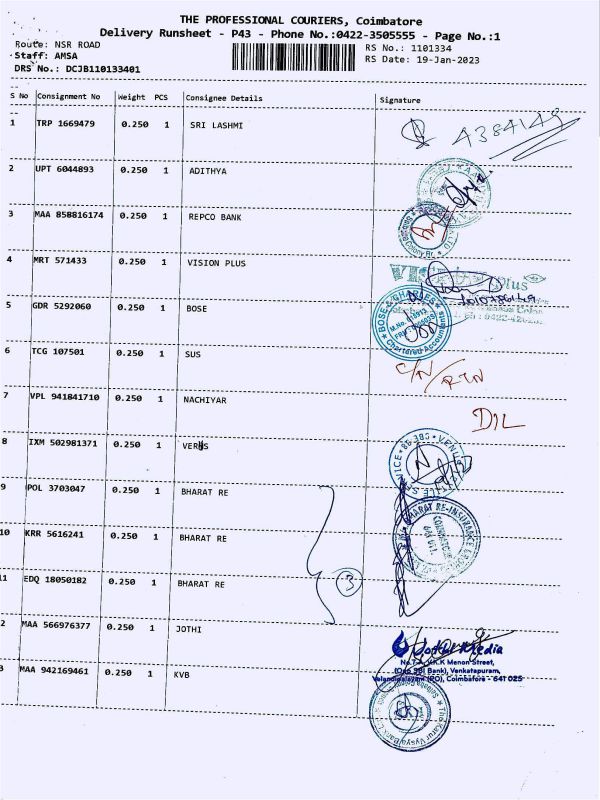 THE PROFESSIONAL COURIERS, Coimbatore
Delivery Runsheet - P43 - Phone No.:0422-3505555 - Page No.:1
Route: NSR ROAD
RS No.: 1101334
Staff: AMSA
RS Date: 19-Jan-2023
DRS No.: DCJB110133401
S No Consignment No Weight PCS Consignee Details Signature
1 TRP 1669479 0.250 1 SRI LASHMI
2 UPT 6044893 0.250 1 ADITHYA
3 MAA 858816174 0.250 1 REPCO BANK
4 MRT 571433 0.250 1 VISION PLUS
5 GDR 5292060 0.250 1 BOSE
BOSE & CHARLES
Chartered Accountants
6 TCG 107501 0.250 1 SUS
C/N/RTN
7 VPL 941841710 0.250 1 NACHIYAR
D/L
8 IXM 502981371 0.250 1
9 POL 3703047 0.250 1 BHARAT RE
BHARAT RE-INSURANCE
10 KRR 5616241 0.250 1 BHARAT RE
11 EDQ 18050182 0.250 1 BHARAT RE
3
2 MAA 566976377 0.250 1 JOTHI
Media
K.K Menon Street,
(Opp SBI Bank), Venkatapuram,
Velandipalayam (PO), Coimbatore - 641 025
3 MAA 942169461 0.250 1 KVB
The Karur Vysya Bank